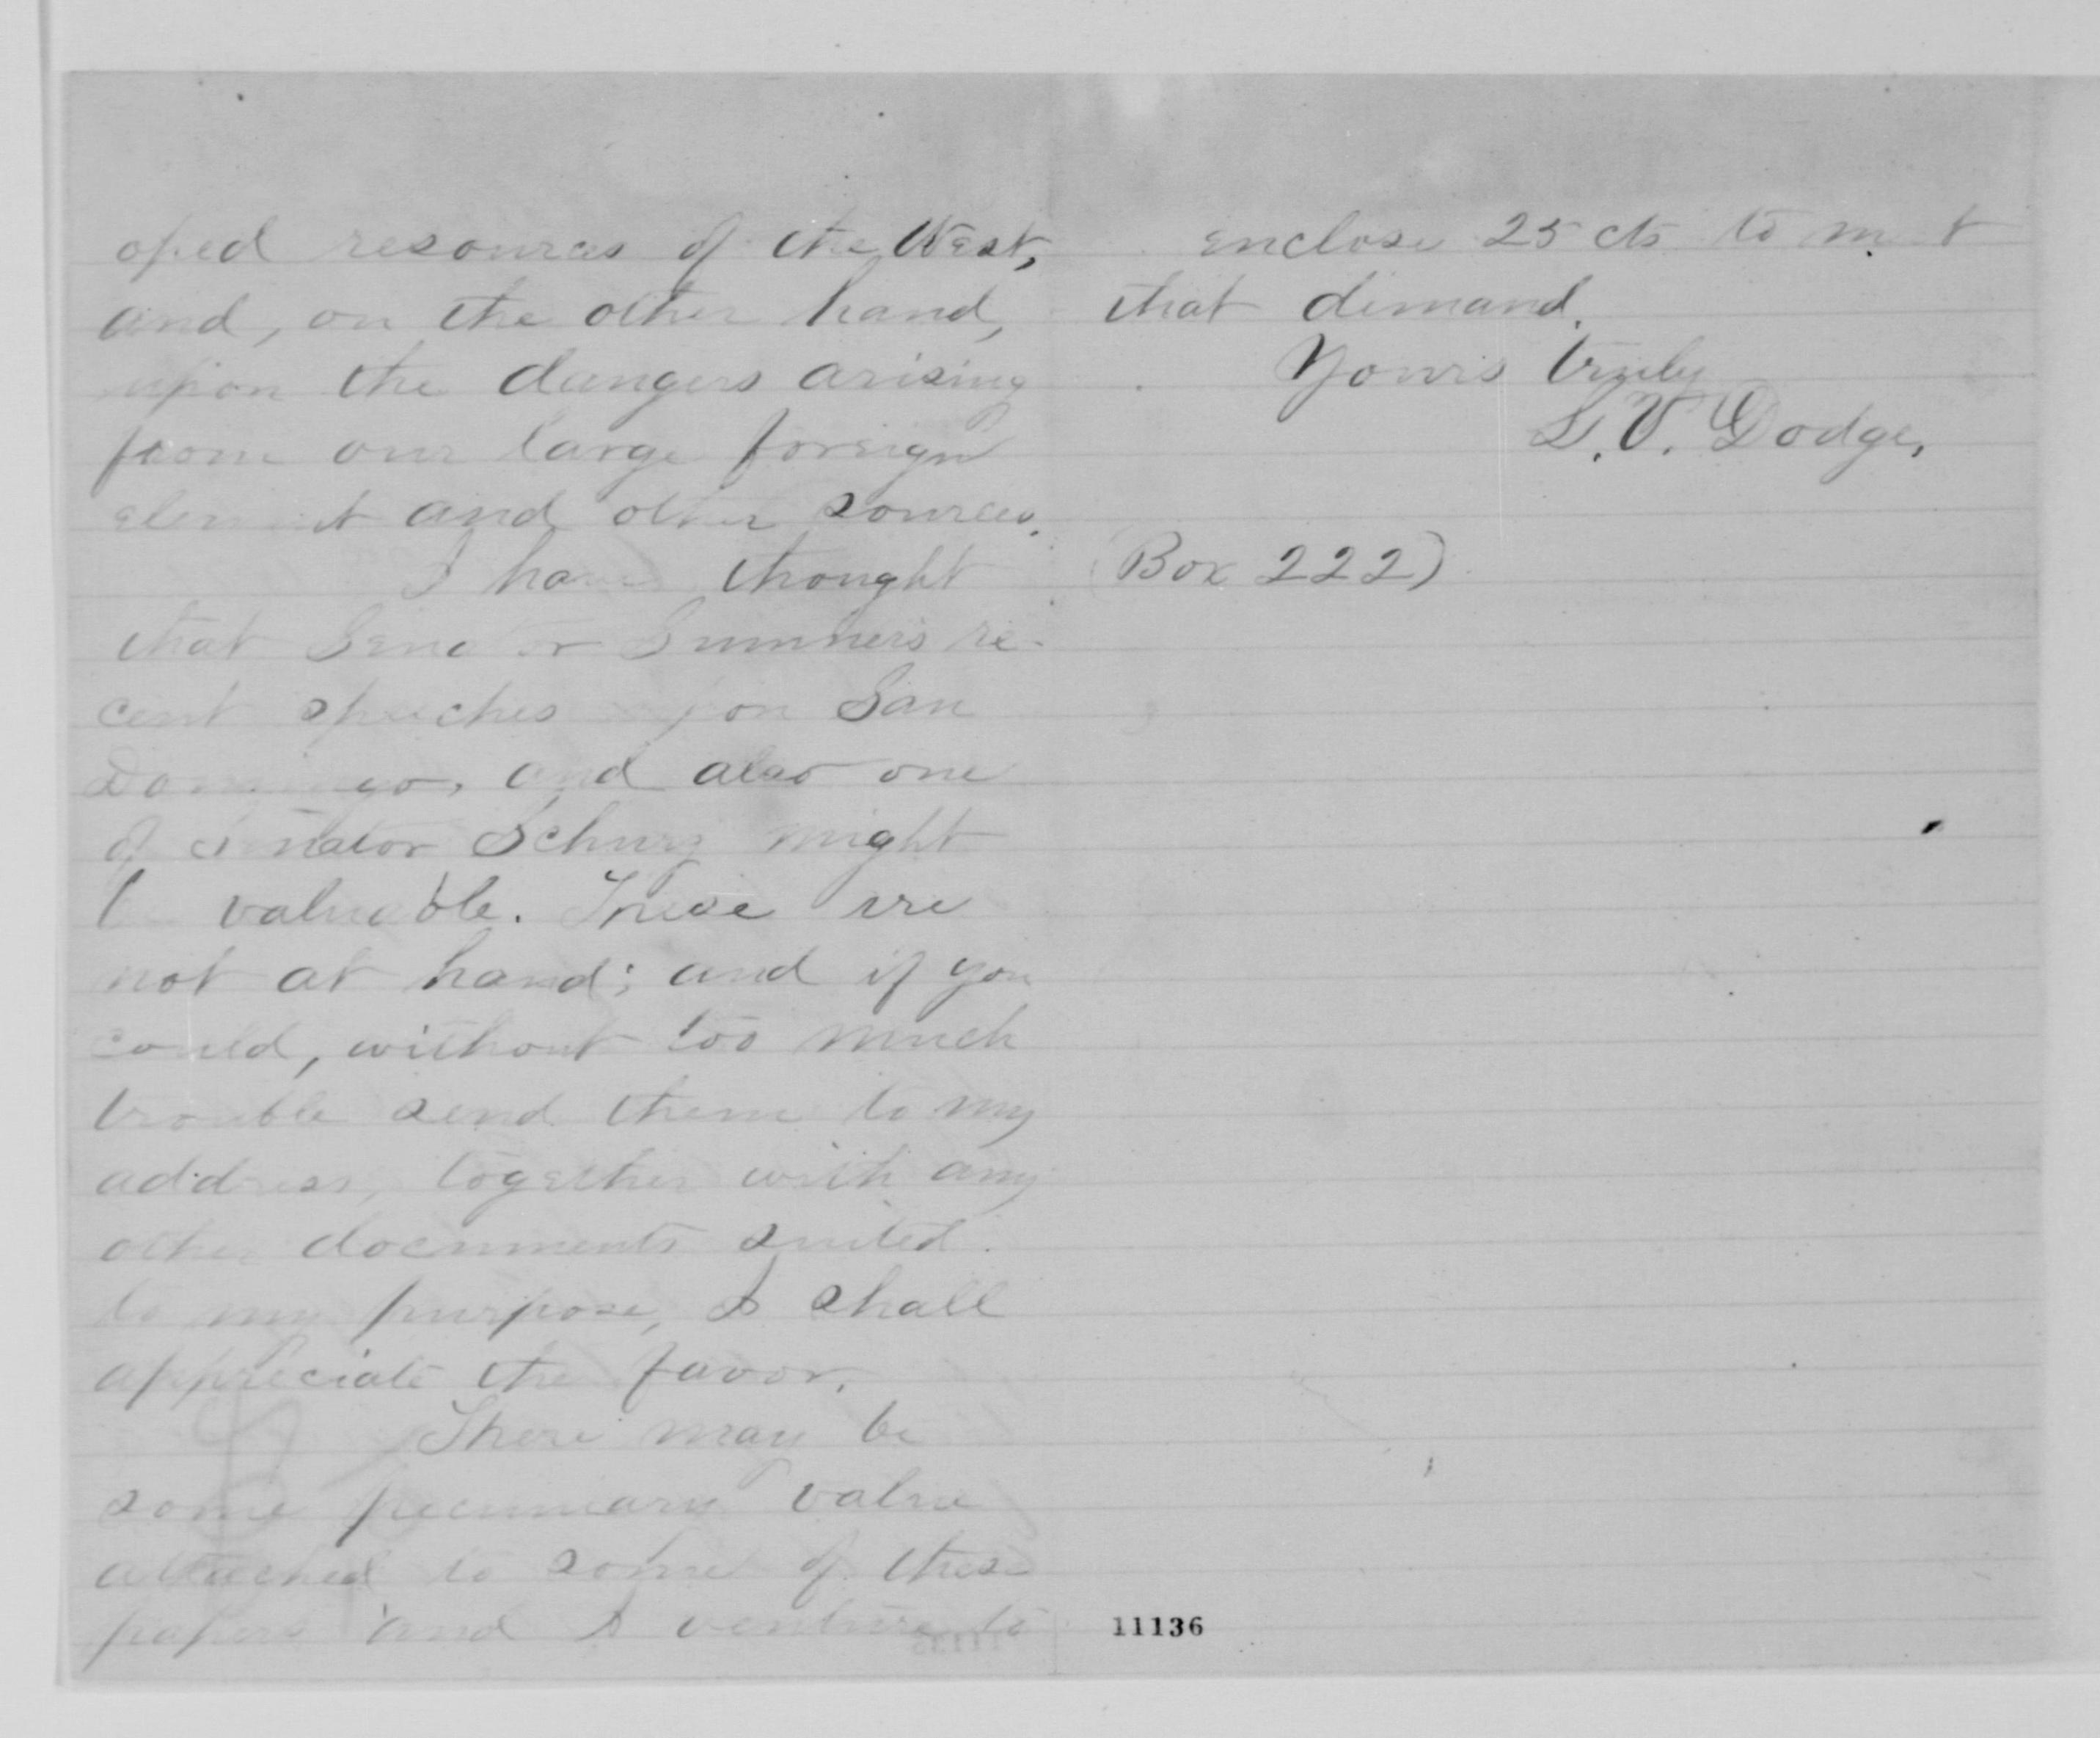 oped resources of the West,
and, on the other hand,
upon the dangers arising
from our large foreign
element and other sources.
I have thought
that Senator Sumner's re-
cent speeches upon San
Domingo, and also one
of Senator Schurz might
be valuable. These are
not at hand; and if you
could, without too much
trouble send them to my
address, together with any
other documents suited
to my purpose, I shall
appreciate the favor.
There may be
some pecuniary value
attached to some of these
papers and I venture to
enclose 25 cts to meet
that demand.
Yours truly
L. V. Dodge,
(Box 222)
11136